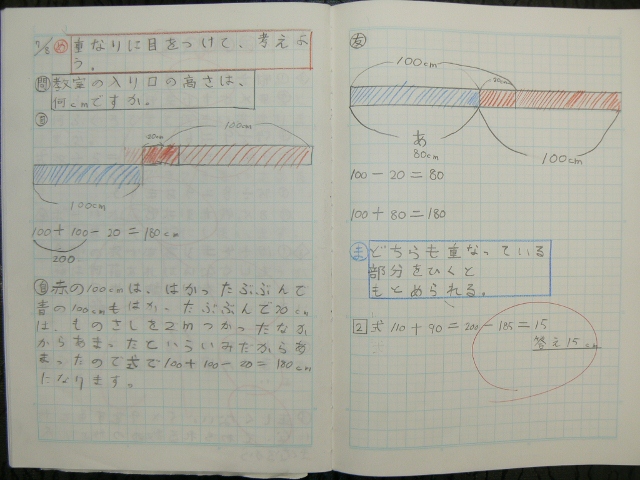 7/8 め 重なりに目をつけて、考えよ
う。
問 教室の入り口の高さは、
何cmですか。
自
20cm
100cm
100cm
100+100-20=180cm
200
赤の100cmは、はかったぶぶんで
青の100cmもはかったぶぶんで20cm
は、ものさしを2mつかったなか
からあまったといういみだからあ
まったので式で100+100-20=180cm
になります。
友
100cm
20cm
あ
80cm
100cm
100-20=80
100+80=180
ま どちらも重なっている
部分をひくと
もとめられる。
2 式 110+90=200-185=15
答え15cm